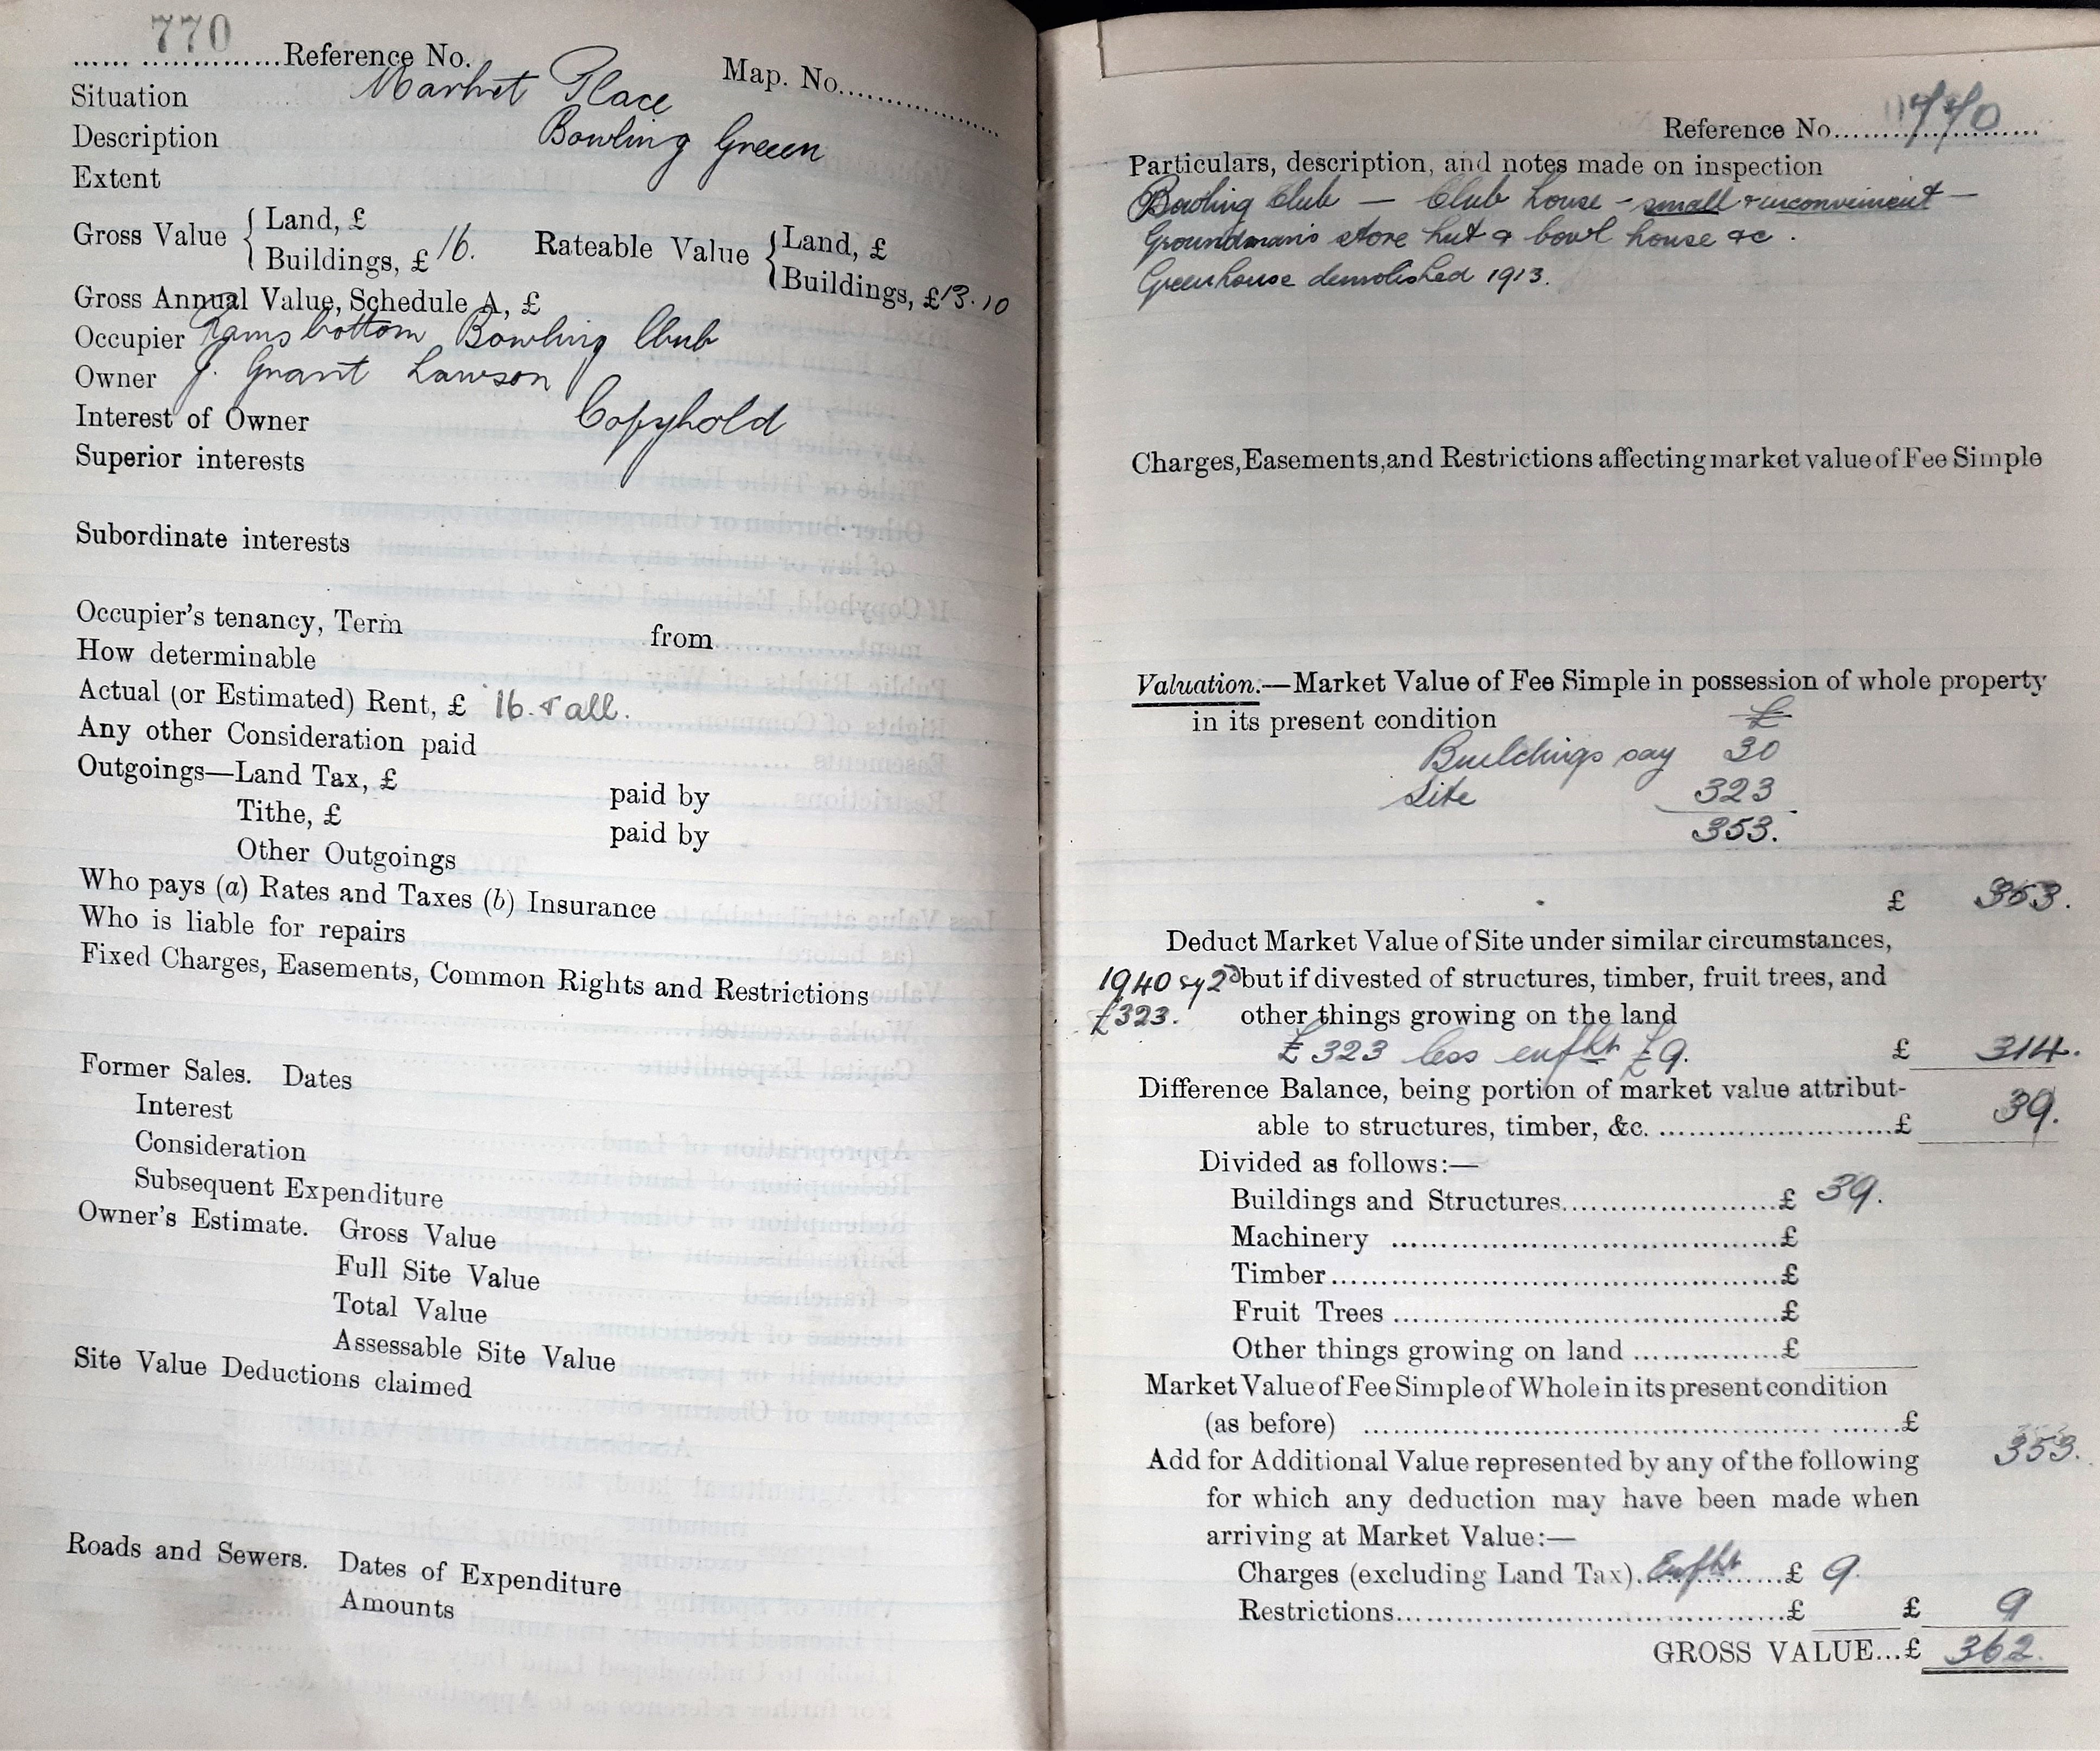 770
...... ..............Reference No.
Map. No....................
Situation Market Place
Description Bowling Green
Extent
Gross Value { Land, £
Buildings, £ 16.
Rateable Value { Land, £
Buildings, £13.10
Gross Annual Value, Schedule A, £
Occupier Ramsbottom Bowling Club
Owner J. Grant Lawson
Interest of Owner Copyhold
Superior interests
Subordinate interests
Occupier's tenancy, Term from
How determinable
Actual (or Estimated) Rent, £ 16. & all.
Any other Consideration paid
Outgoings—Land Tax, £ paid by
Tithe, £ paid by
Other Outgoings
Who pays (a) Rates and Taxes (b) Insurance
Who is liable for repairs
Fixed Charges, Easements, Common Rights and Restrictions
Former Sales. Dates
Interest
Consideration
Subsequent Expenditure
Owner's Estimate. Gross Value
Full Site Value
Total Value
Assessable Site Value
Site Value Deductions claimed
Roads and Sewers. Dates of Expenditure
Amounts
Reference No....770....
Particulars, description, and notes made on inspection
Bowling Club — Club house - small & inconvenient —
Groundman's store hut & bowl house &c.
Greenhouse demolished 1913.
Charges, Easements, and Restrictions affecting market value of Fee Simple
Valuation.—Market Value of Fee Simple in possession of whole property
in its present condition £
Buildings say 30
Site 323
353.
£ 353.
Deduct Market Value of Site under similar circumstances,
1940 sy 2D but if divested of structures, timber, fruit trees, and
£323. other things growing on the land
£323 less enfht £9. £ 314.
Difference Balance, being portion of market value attribut-
able to structures, timber, &c. ............................£ 39.
Divided as follows:—
Buildings and Structures........................£ 39.
Machinery ............................................£
Timber...................................................£
Fruit Trees ............................................£
Other things growing on land ................£
Market Value of Fee Simple of Whole in its present condition
(as before) ........................................................£ 353.
Add for Additional Value represented by any of the following
for which any deduction may have been made when
arriving at Market Value:—
Charges (excluding Land Tax)..Enfht......£ 9.
Restrictions.............................................£ £ 9
GROSS VALUE...£ 362.